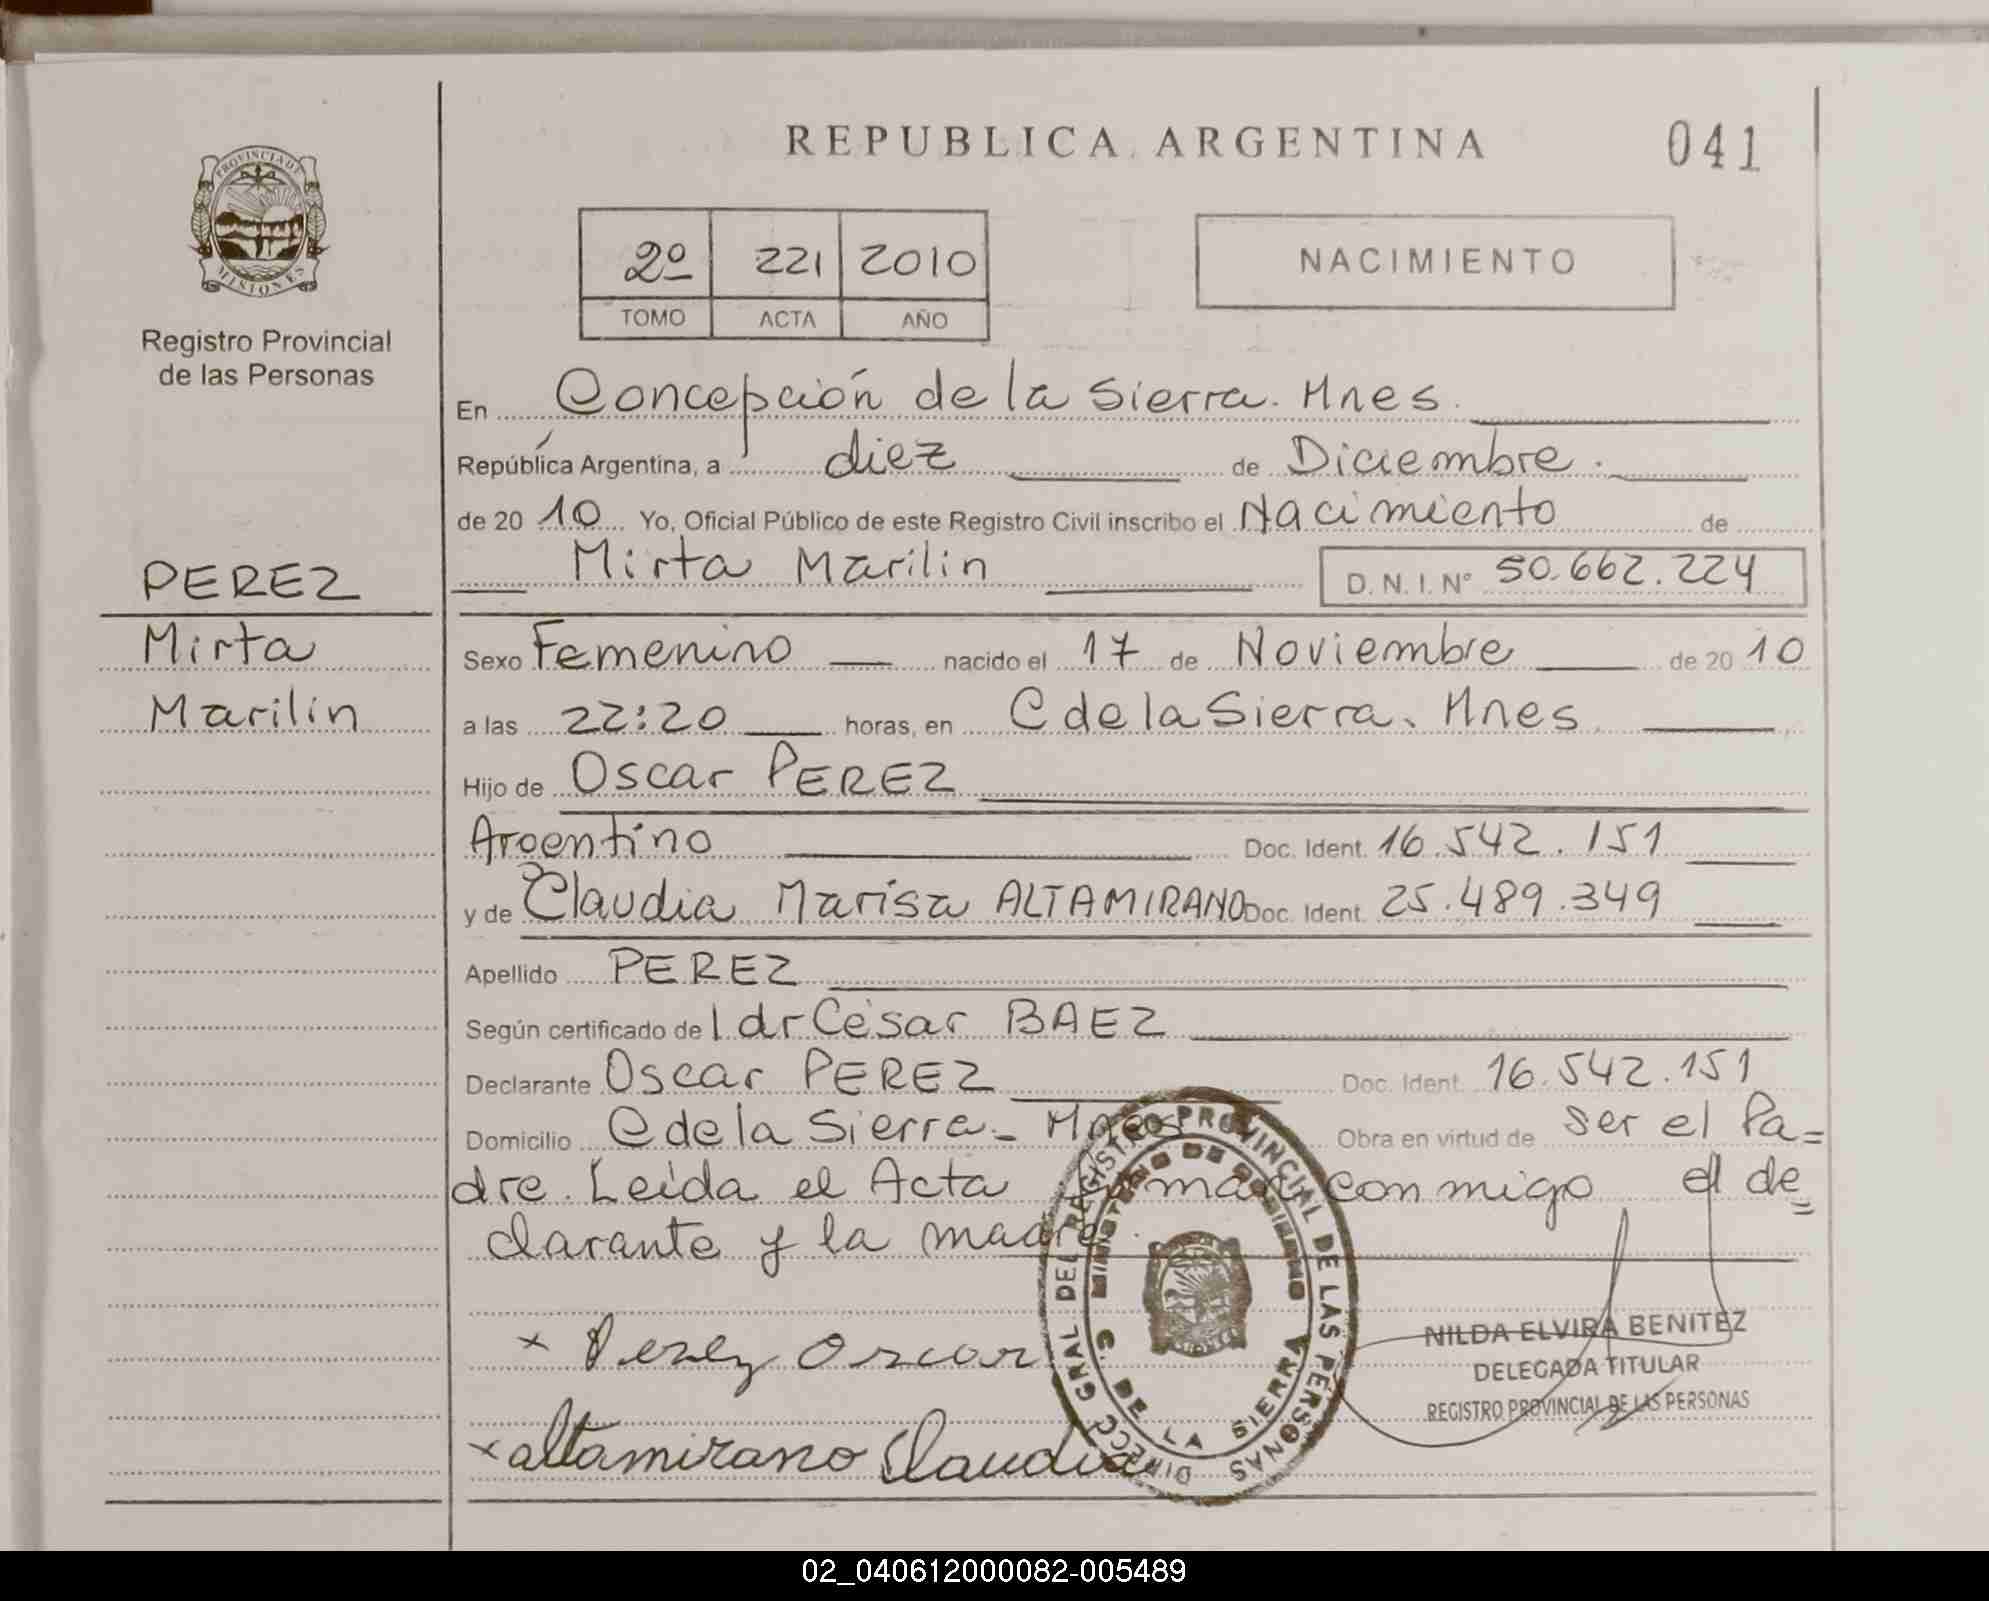 REPUBLICA ARGENTINA
041
PROVINCIA DE
MISIONES
Registro Provincial
de las Personas
2º 221 2010
TOMO ACTA AÑO
NACIMIENTO
En Concepción de la Sierra. Mnes.
República Argentina, a diez de Diciembre.
de 20 10 Yo, Oficial Público de este Registro Civil inscribo el Nacimiento de
Mirta Marilin D. N. I. Nº 50.662.224
PEREZ
Mirta
Marilin
Sexo Femenino nacido el 17 de Noviembre de 20 10
a las 22:20 horas, en C de la Sierra. Mnes
Hijo de Oscar PEREZ
Argentino Doc. Ident. 16.542.151
y de Claudia Marisa ALTAMIRANO Doc. Ident. 25.489.349
Apellido PEREZ
Según certificado de l dr César BAEZ
Declarante Oscar PEREZ Doc. Ident. 16.542.151
Domicilio C de la Sierra - Mnes Obra en virtud de ser el Pa=
dre. Leída el Acta firman conmigo el de=
clarante y la madre.
x Perez Oscar
x altamirano Claudia
DIRECC GRAL DEL REGISTRO PROVINCIAL DE LAS PERSONAS
MINISTERIO DE GOBIERNO
C. DE LA SIERRA
NILDA ELVIRA BENITEZ
DELEGADA TITULAR
REGISTRO PROVINCIAL DE LAS PERSONAS
02_040612000082-005489